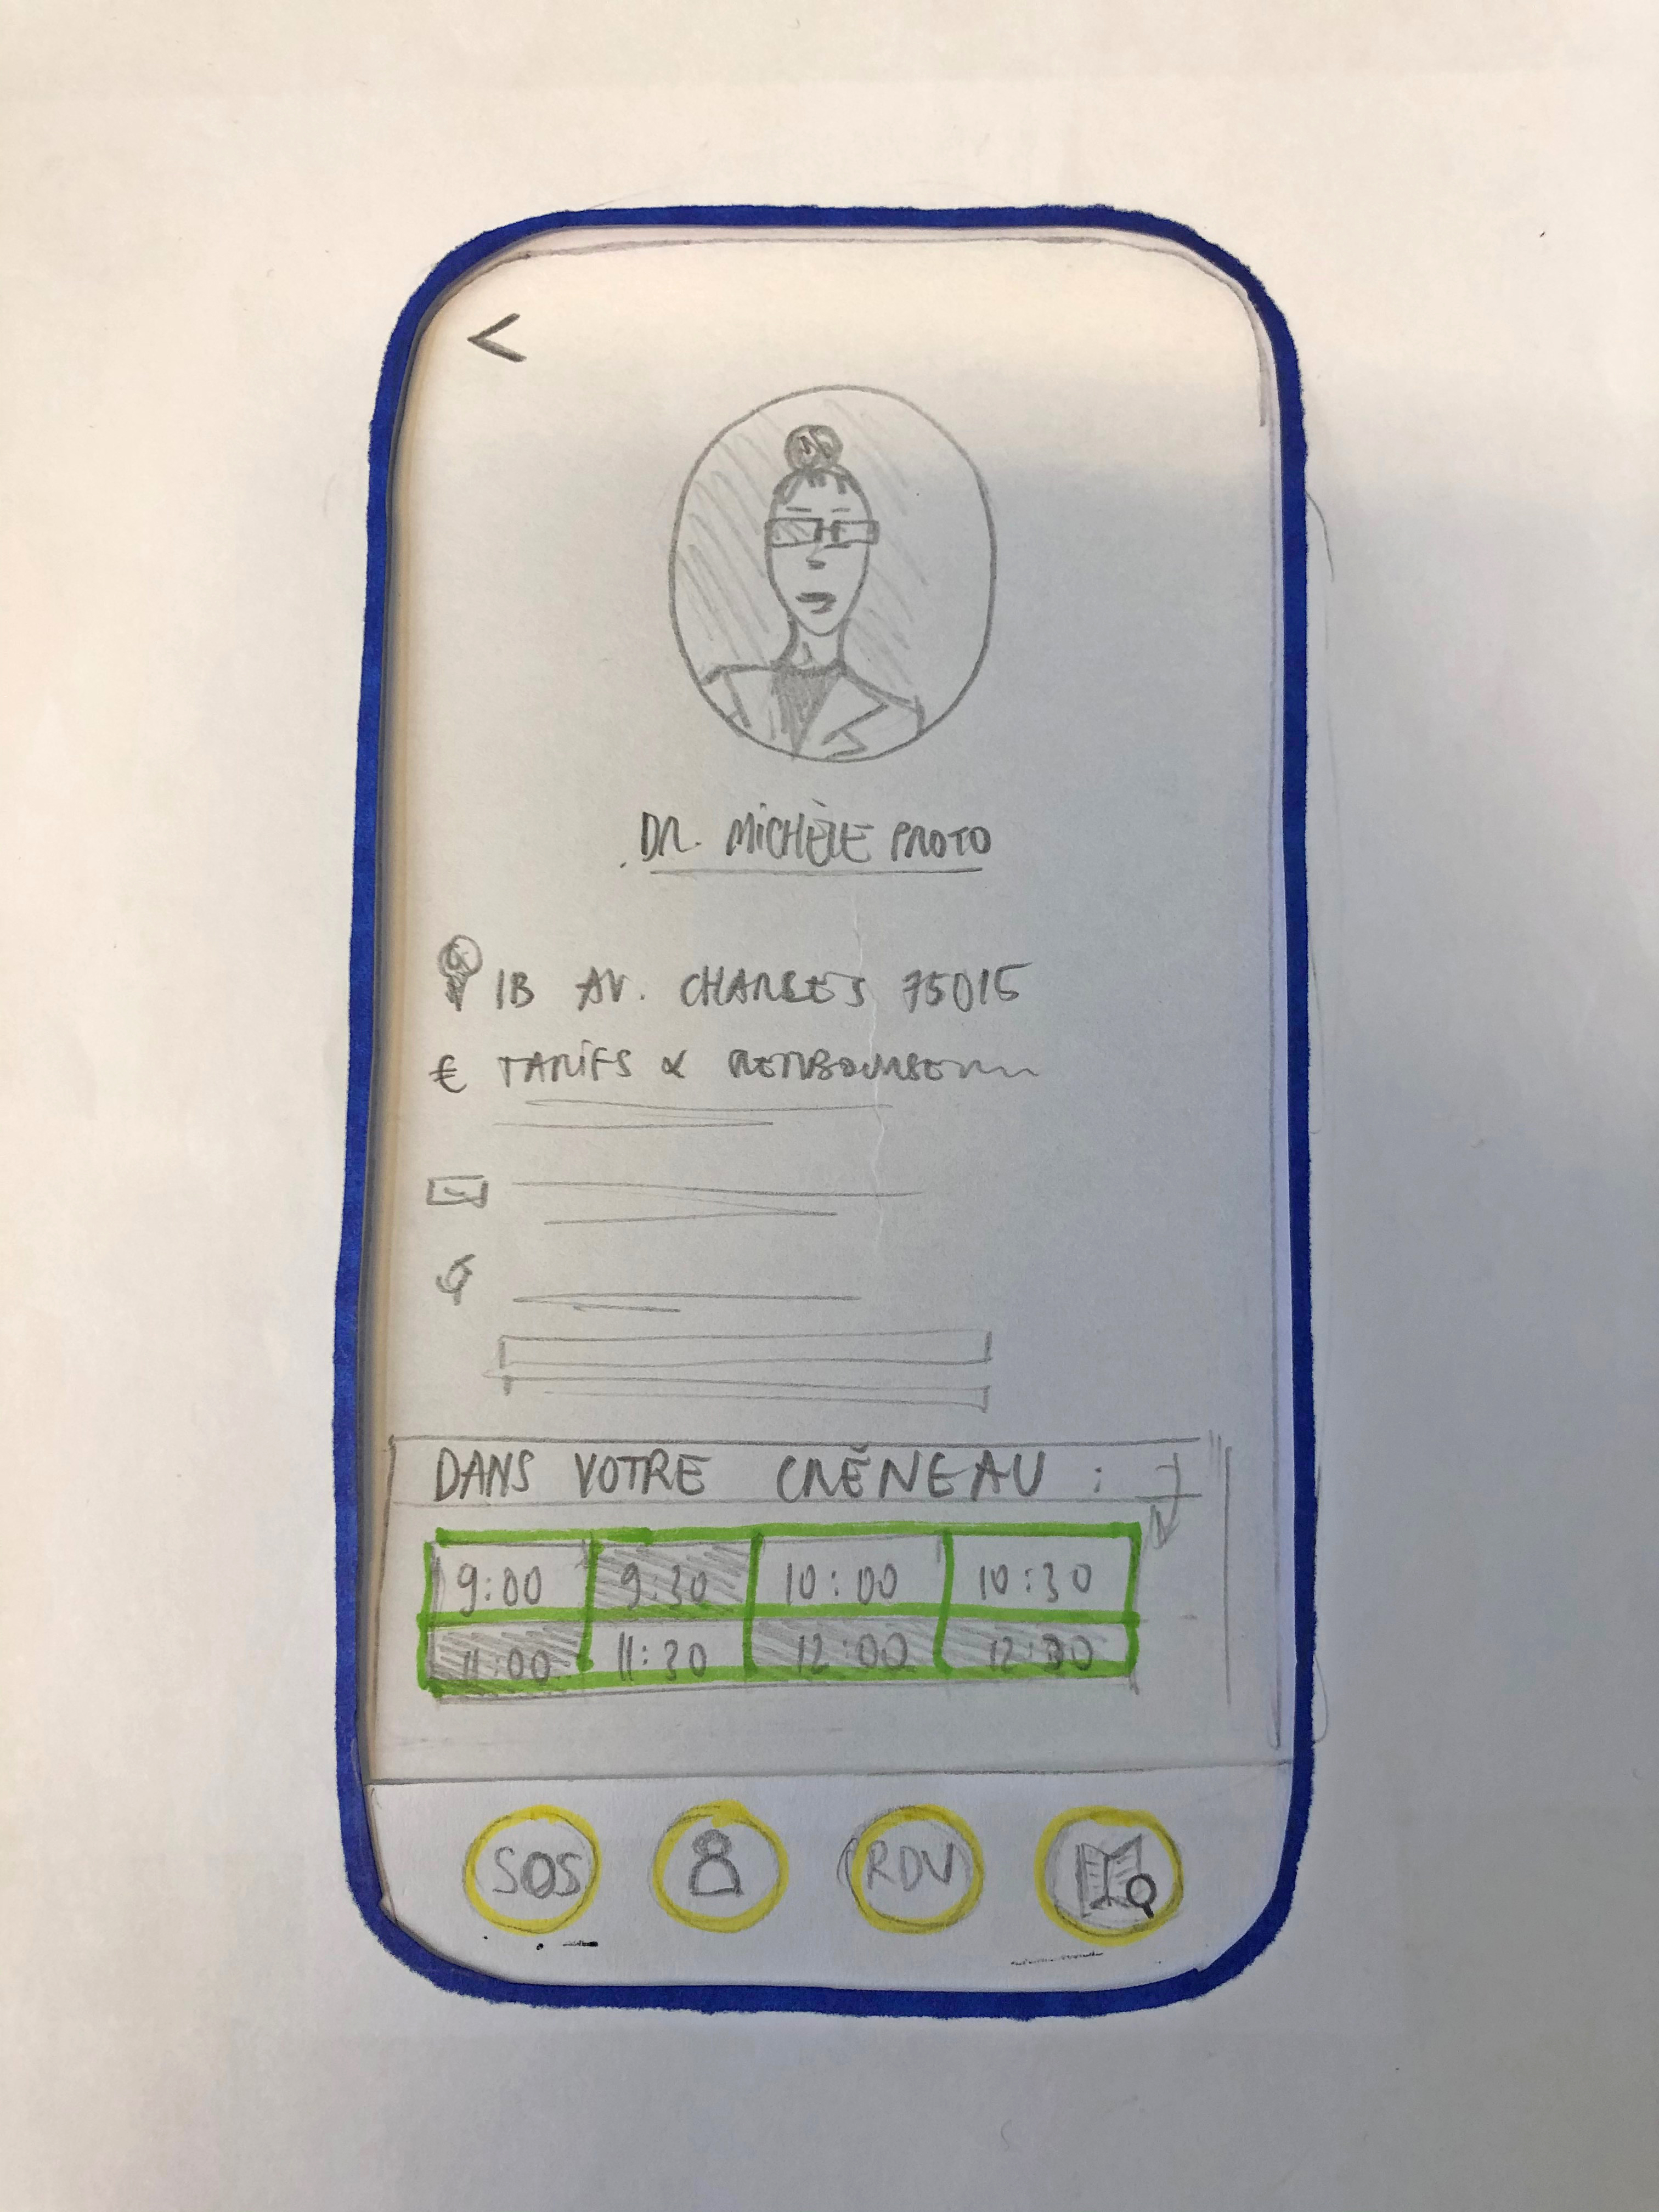 <
DR. MICHÈLE PROTO
1B AV. CHARLES 75015
€ TARIFS &
DANS VOTRE CRÉNEAU :
9:00 9:30 10:00 10:30
11:00 11:30 12:00 12:30
SOS RDV